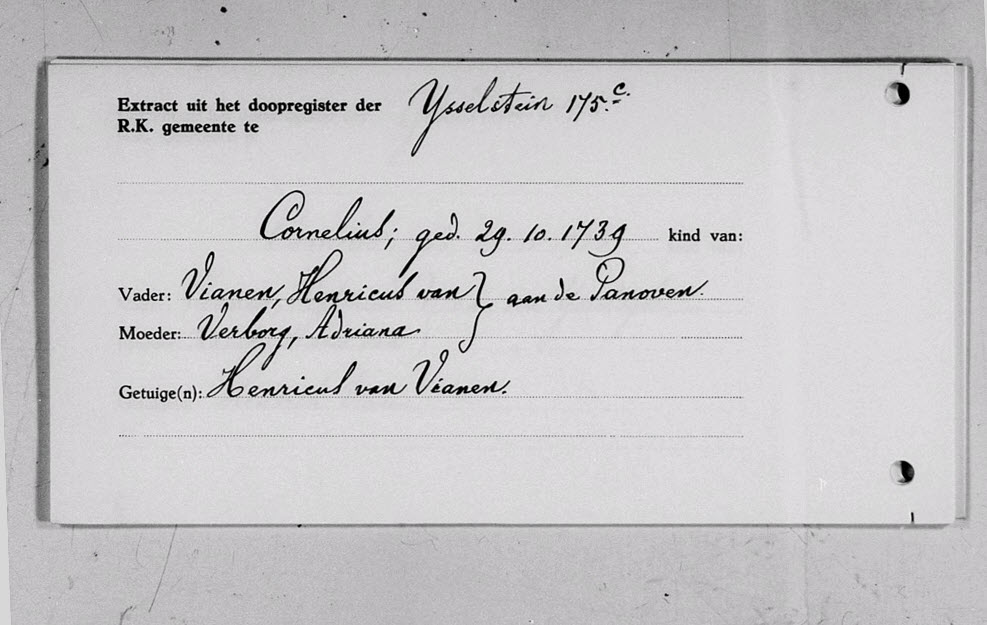 Extract uit het doopregister der Ysselstein 175.c.
R.K. gemeente te
Cornelius; ged. 29. 10. 1739 kind van:
Vader: Vianen, Henricus van } aan de Panoven.
Moeder: Verborg, Adriana
Getuige(n): Henricus van Vianen.